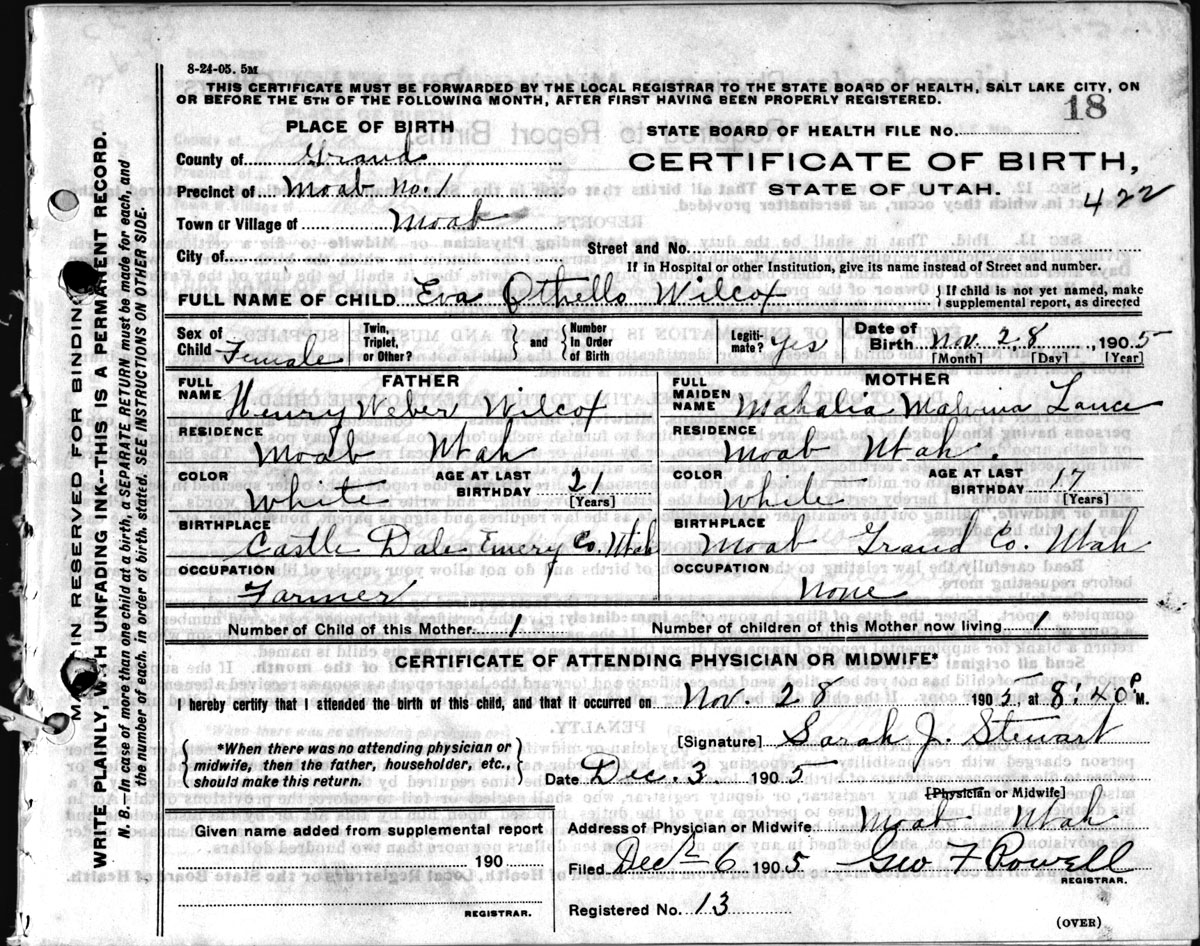 8-24-05. 5M
THIS CERTIFICATE MUST BE FORWARDED BY THE LOCAL REGISTRAR TO THE STATE BOARD OF HEALTH, SALT LAKE CITY, ON
OR BEFORE THE 5TH OF THE FOLLOWING MONTH, AFTER FIRST HAVING BEEN PROPERLY REGISTERED.
18
PLACE OF BIRTH
STATE BOARD OF HEALTH FILE No.
County of Grand
CERTIFICATE OF BIRTH,
Precinct of Moab No. 1
STATE OF UTAH.
422
Town or Village of Moab
City of
Street and No.
If in Hospital or other Institution, give its name instead of Street and number.
FULL NAME OF CHILD Eva Othello Wilcox
{ If child is not yet named, make
supplemental report, as directed
Sex of Child Female
Twin, Triplet, or Other?
} and {
Number In Order of Birth
Legiti-mate? Yes
Date of Birth Nov. 28, 1905
[Month] [Day] [Year]
FATHER
MOTHER
FULL NAME Henry Weber Wilcox
FULL MAIDEN NAME Mahalia Malvina Lance
RESIDENCE Moab Utah
RESIDENCE Moab Utah.
COLOR White
AGE AT LAST BIRTHDAY 21
[Years]
COLOR White
AGE AT LAST BIRTHDAY 17
[Years]
BIRTHPLACE Castle Dale Emery Co. Utah
BIRTHPLACE Moab Grand Co. Utah
OCCUPATION Farmer
OCCUPATION None
Number of Child of this Mother 1
Number of children of this Mother now living 1
CERTIFICATE OF ATTENDING PHYSICIAN OR MIDWIFE*
I hereby certify that I attended the birth of this child, and that it occurred on Nov. 28 1905, at 8:40 P M.
[Signature] Sarah J. Stewart
{ *When there was no attending physician or
midwife, then the father, householder, etc.,
should make this return. }
Date Dec. 3 1905
[Physician or Midwife]
Given name added from supplemental report
190
REGISTRAR.
Address of Physician or Midwife Moab Utah
Filed Dec 6 1905 Geo F Powell
REGISTRAR.
Registered No. 13
(OVER)
MARGIN RESERVED FOR BINDING
WRITE PLAINLY, WITH UNFADING INK--THIS IS A PERMANENT RECORD.
N. B.—In case of more than one child at a birth, a SEPARATE RETURN must be made for each, and
the number of each, in order of birth, stated. SEE INSTRUCTIONS ON OTHER SIDE.